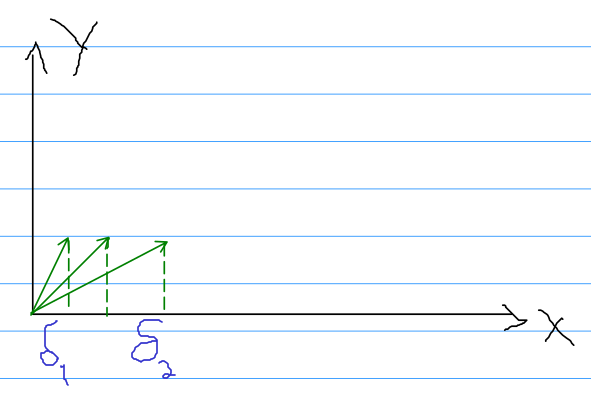 Y
X
δ₁ δ₂